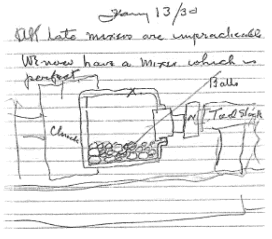 Jany 13/30
All lato mixers are impracticable
We now have a mixer which is
perfect
Balls
Chuck
Tool Stock